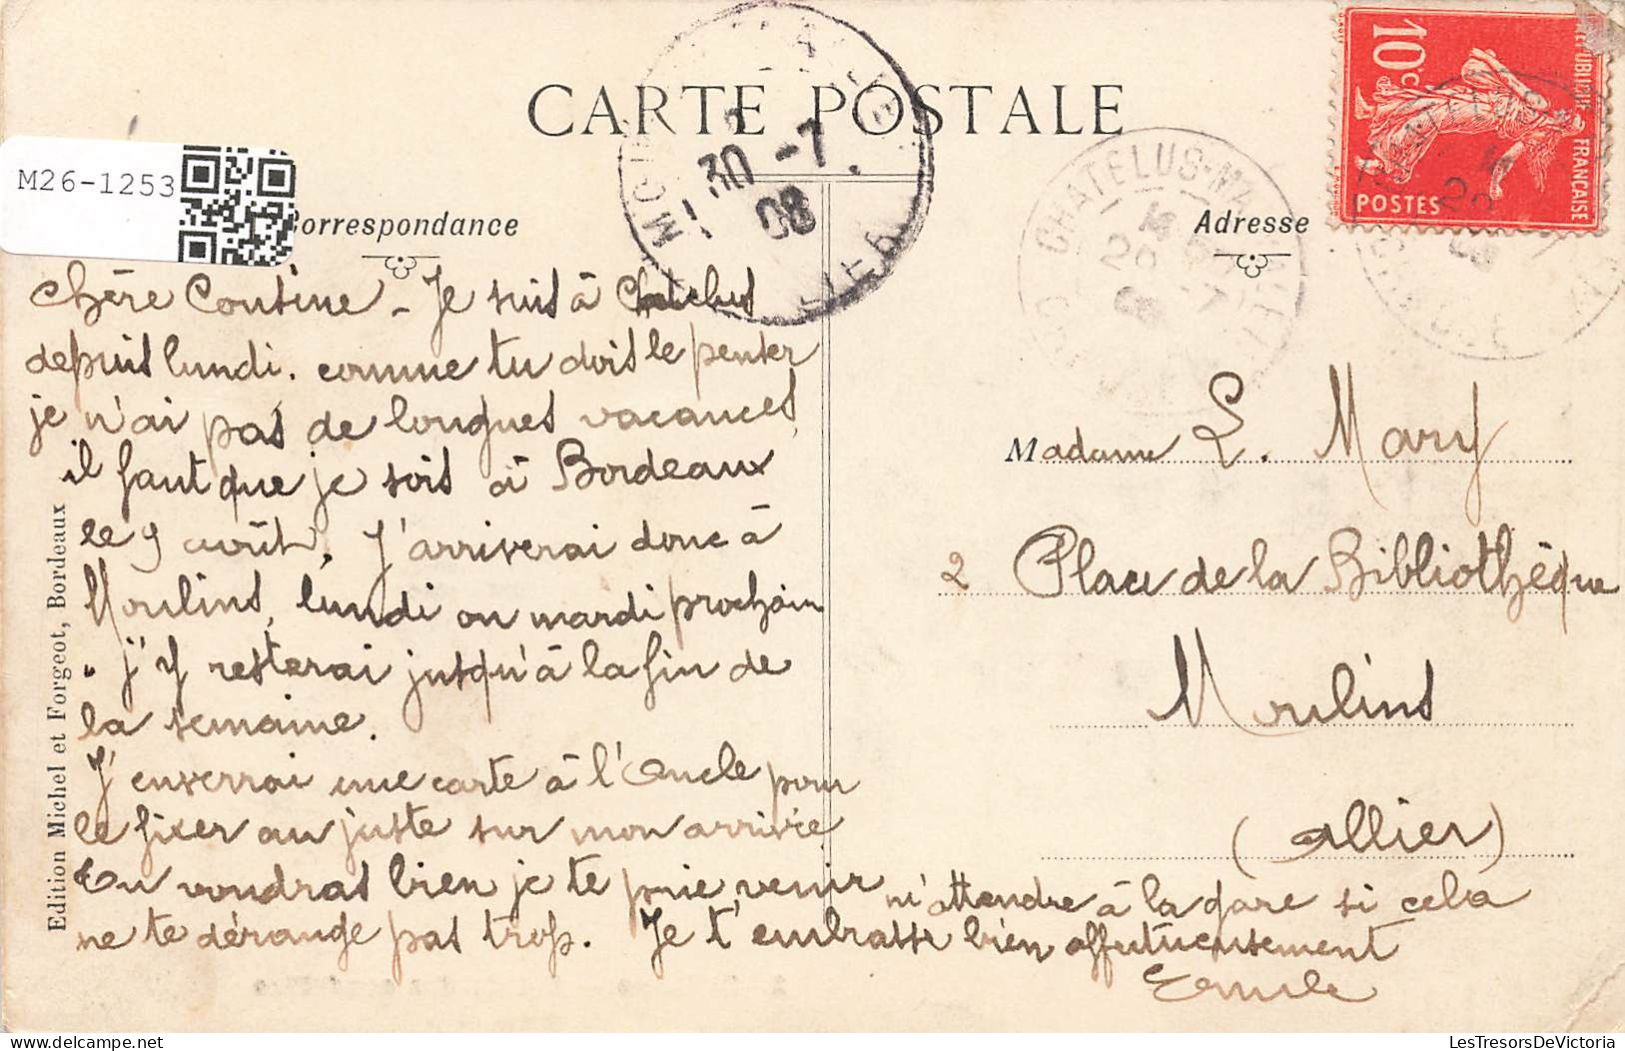 CARTE POSTALE
M26-1253
Correspondance
Adresse
10c
REPUBLIQUE FRANÇAISE
POSTES
30 -7
08
CHATELUS-MA
Chère Cousine - Je suis à Chatelus
depuis lundi. comme tu dois le penser
je n'ai pas de longues vacances,
il faut que je sois à Bordeaux
le 9 août. J'arriverai donc à
Moulins, lundi ou mardi prochain
. j'y resterai jusqu'à la fin de
la semaine.
J'enverrai une carte à l'Oncle pour
le fixer au juste sur mon arrivée
Tu voudras bien je te prie, venir m'attendre à la gare si cela
ne te dérange pas trop. Je t'embrasse bien affectueusement
Madame L. Mary
2 Place de la Bibliothèque
Moulins
(Allier)
Edition Michel et Forgeot, Bordeaux
LesTresorsDeVictoria.com